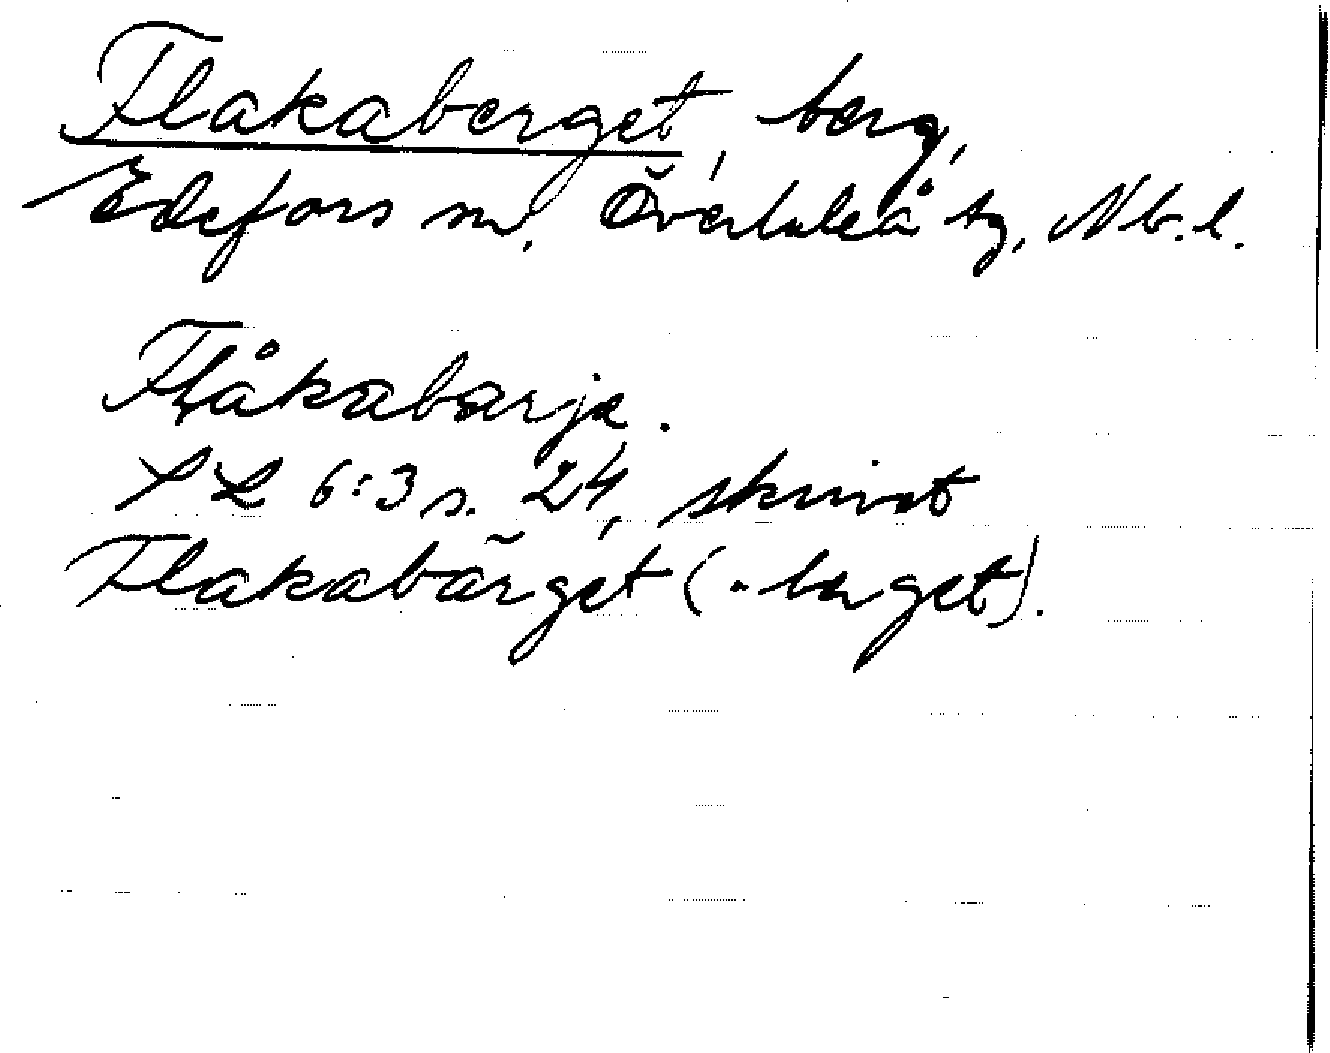 Flakaberget, berg,
Edefors sn, Överluleå tg, Nb.l.
Flåkabærje.
SL 6:3 s. 24, skrivet
Flakabärget (-berget).